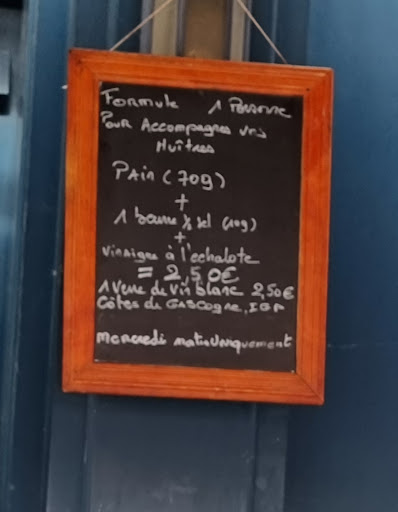 Formule 1 Personne
Pour Accompagner vos
Huîtres
PAin (70g)
+
1 beurre ½ sel (10g)
+
vinaigre à l'echalote
= 2,50€
1 Verre de vin blanc 2,50€
Côtes de Gascogne, IGP
Mercredi matin Uniquement